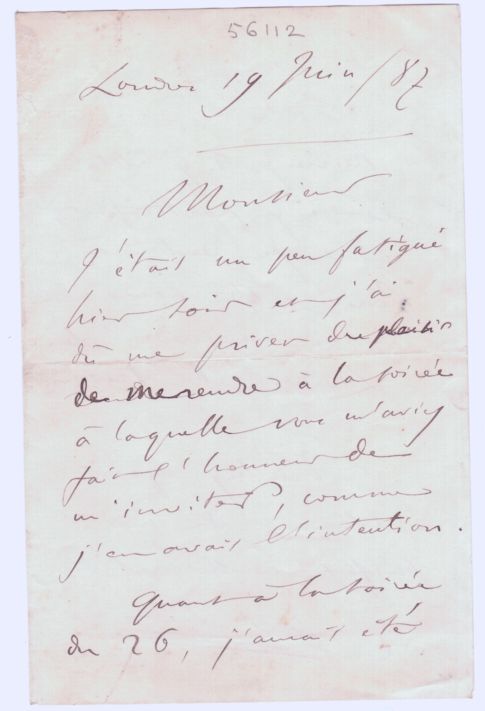 56112
Londres 19 Juin / 87
Monsieur
J'étais un peu fatigué
hier soir et j'ai
dû me priver du plaisir
de me rendre à la soirée
à laquelle vous m'aviez
fait l'honneur de
m'inviter, comme
j'en avais l'intention.
Quant à la soirée
du 26, j'aurais été